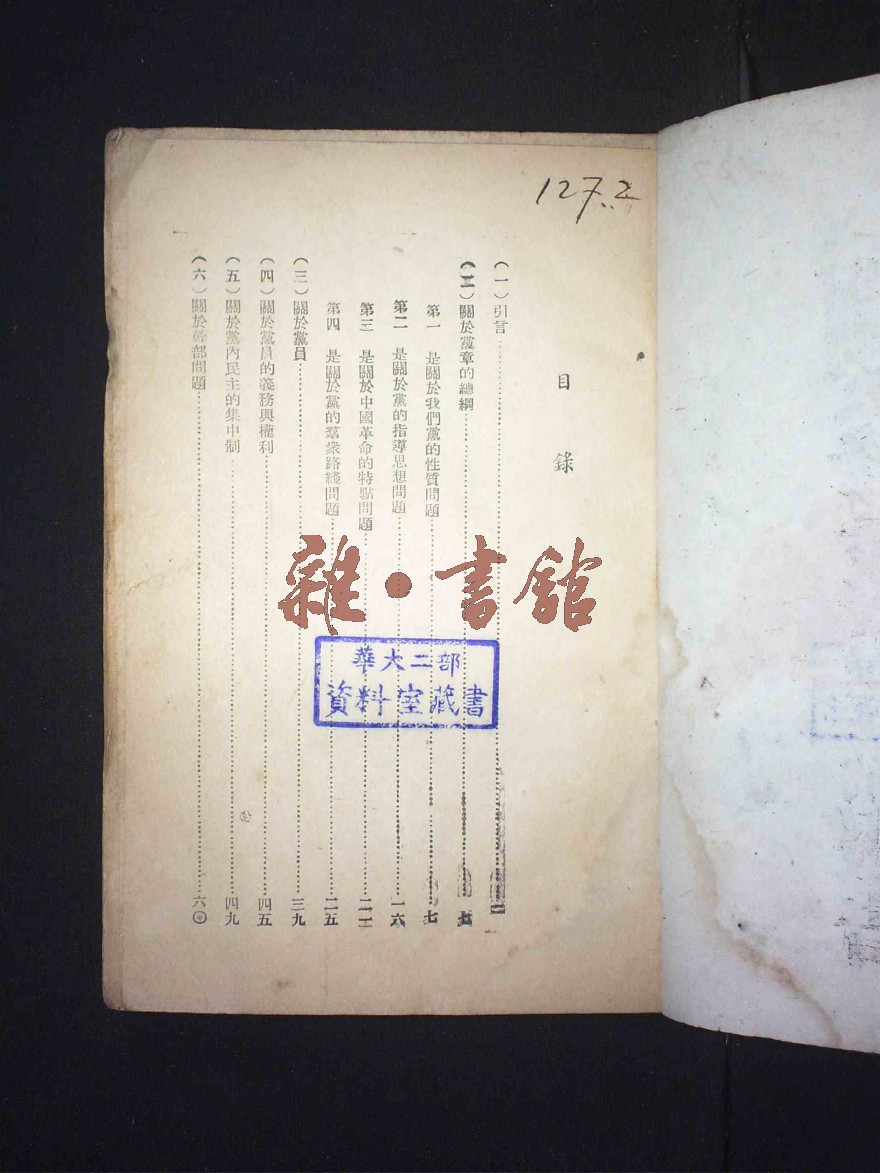 127.2
目錄
(一)引言………一
(二)關於黨章的總綱………五
第一 是關於我們黨的性質問題………七
第二 是關於黨的指導思想問題………一六
第三 是關於中國革命的特點問題………二二
第四 是關於黨的羣衆路綫問題………二五
(三)關於黨員………三九
(四)關於黨員的義務與權利………四五
(五)關於黨內民主的集中制………四九
(六)關於幹部問題………六〇
雜·書館
華大二部
資料室藏書